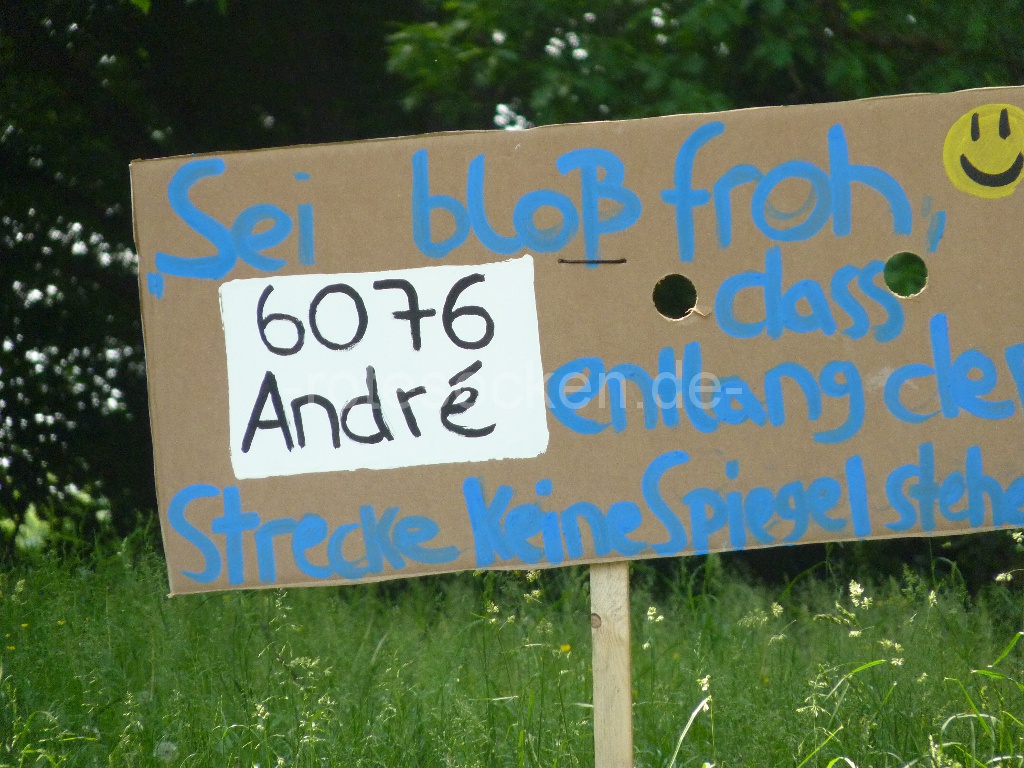 „Sei bloß froh,
dass
6076
André
entlang der
Strecke keine Spiegel stehe
-rotesocken.de-